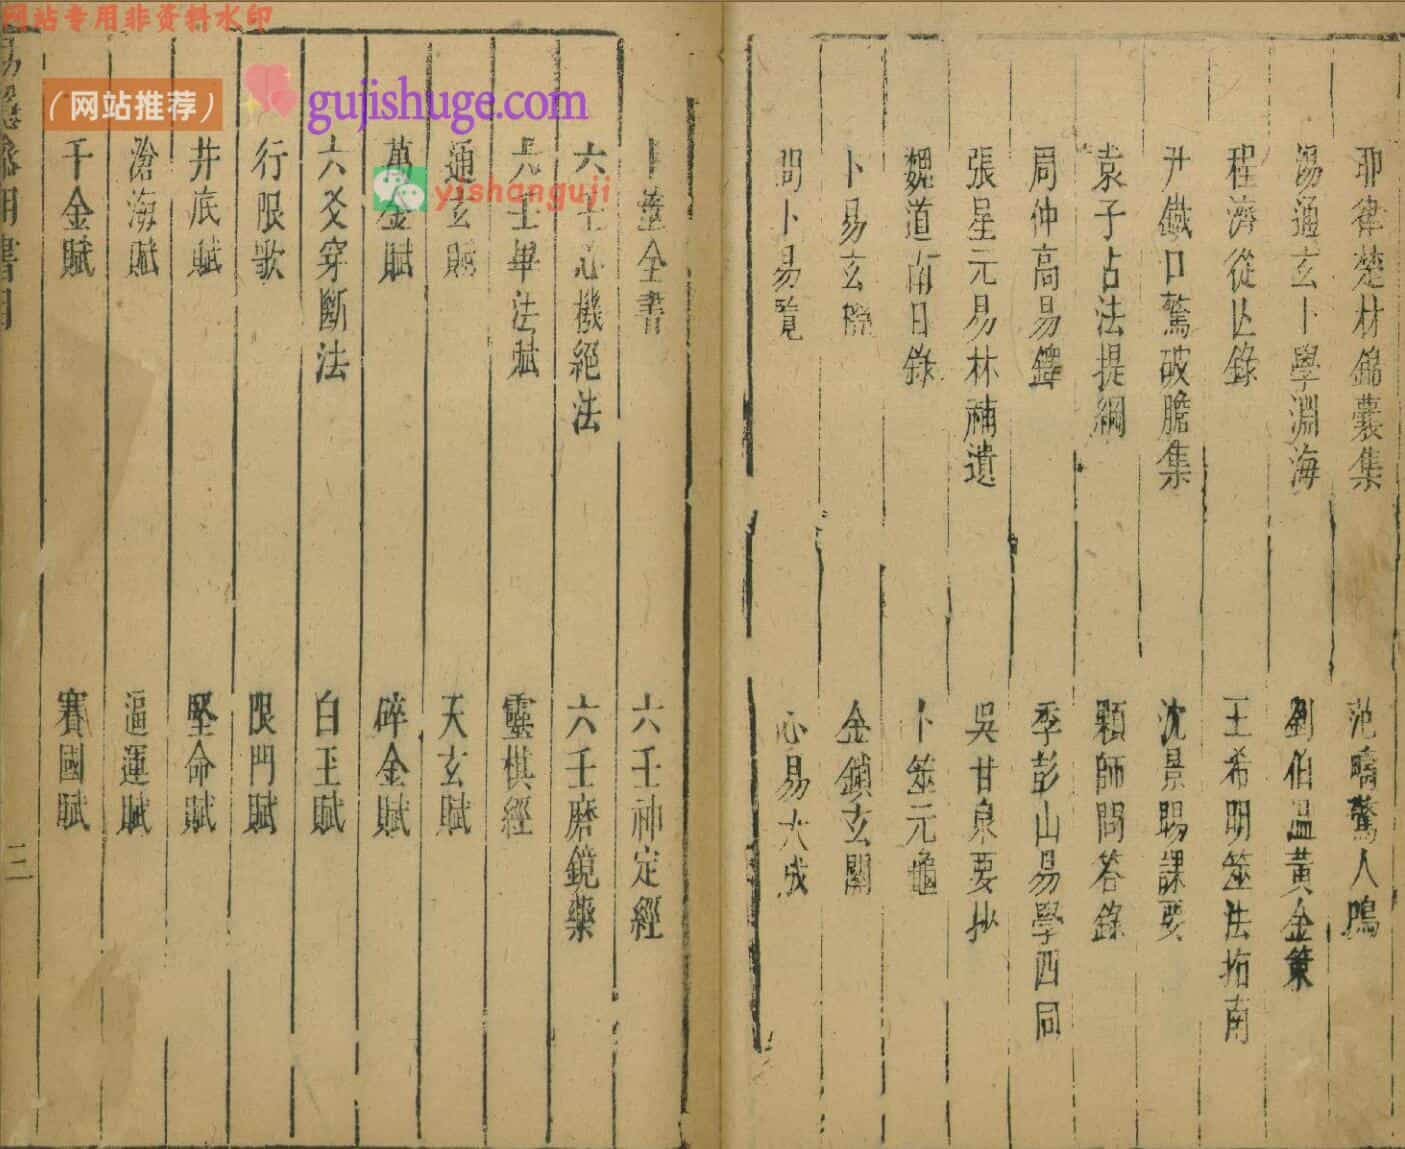 网站专用非资料水印
（网站推荐）
gujishuge.com
yishanguji
耶律楚材錦囊集
范疇驚人鳴
湯通玄卜學淵海
劉伯溫黃金策
程濟從亾錄
王希明筮法指南
尹鐵口驚破膽集
沈景暘課要
袁子占法提綱
顆師問荅錄
周仲高易鐸
季彭山易學四同
張星元易林補遺
吳甘泉要抄
魏道南日錄
卜筮元龜
卜易玄機
金鎖玄關
問卜易覽
心易大成
卜筮全書
六壬神定經
六壬心機絕法
六壬磨鏡藥
六壬畢法賦
靈棋經
通玄賦
天玄賦
萬金賦
碎金賦
六爻穿斷法
白玉賦
行限歌
限門賦
井底賦
堅命賦
滄海賦
逼運賦
千金賦
賽國賦
三